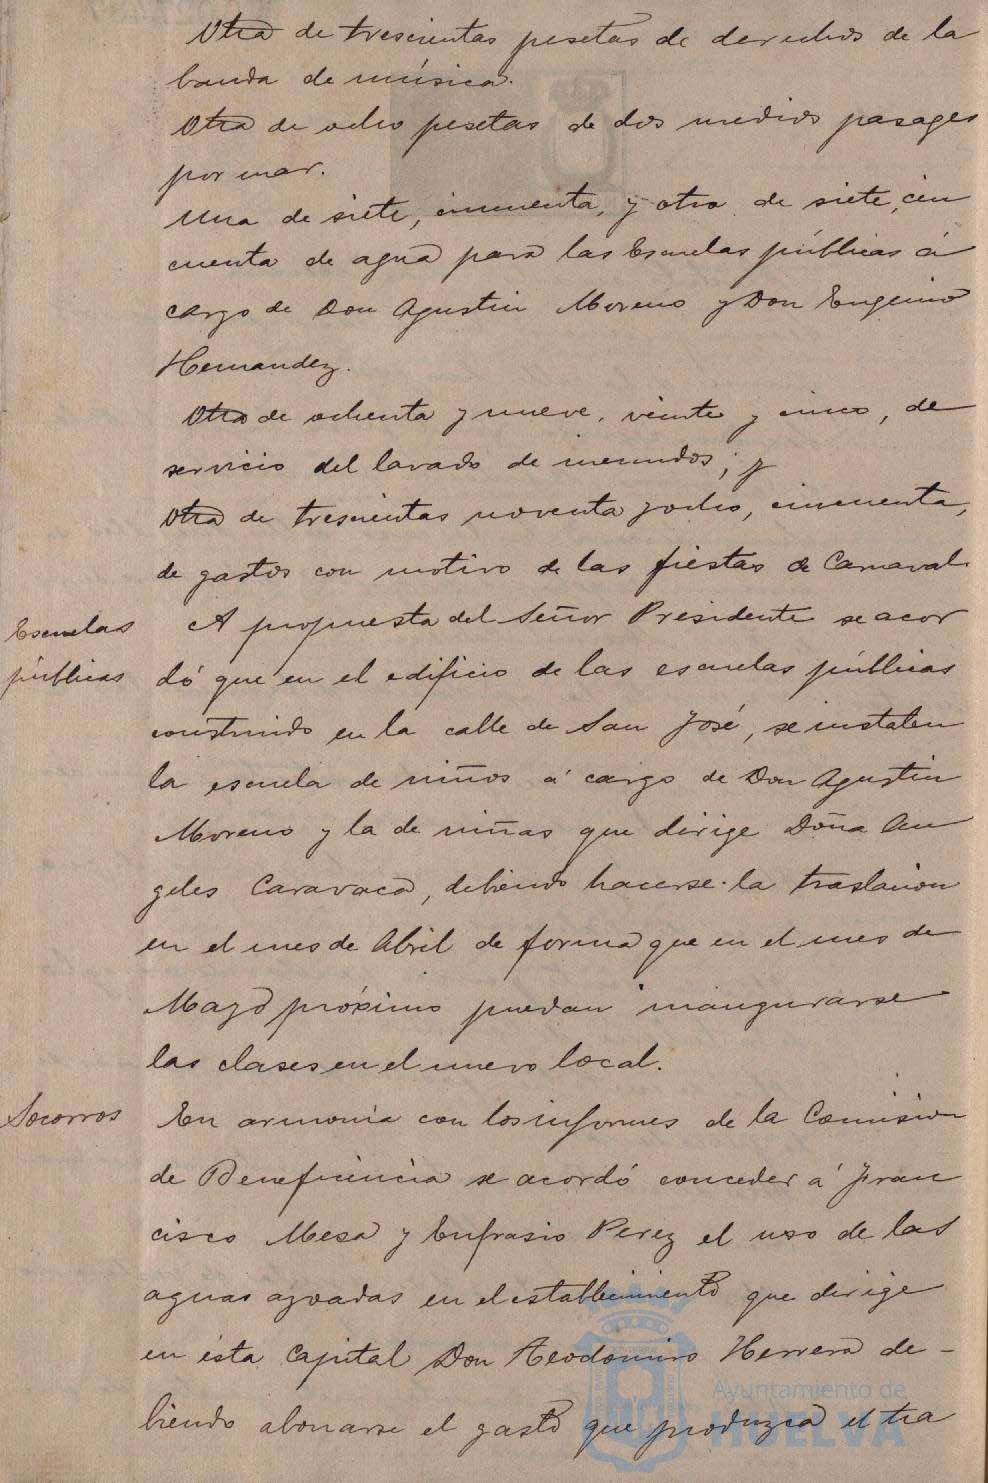 Otra de trescientas pesetas de derechos de la
banda de música.
Otra de ocho pesetas de dos medios pasages
por mar.
Una de siete, cincuenta, y otra de siete, cin
cuenta de agua para las Escuelas públicas á
cargo de Don Agustin Moreno y Don Eugenio
Hernandez.
Otra de ochenta y nueve, veinte y cinco, de
servicio del lavado de inmundos; y
Otra de trescientas noventa y ocho, cincuenta,
de gastos con motivo de las fiestas de Carnaval.
Escuelas
públicas
A propuesta del Señor Presidente se acor
dó que en el edificio de las escuelas públicas
construido en la calle de San José, se instalen
la escuela de niños á cargo de Don Agustin
Moreno y la de niñas que dirige Doña An
geles Caravaca, debiendo hacerse la traslacion
en el mes de Abril de forma que en el mes de
Mayo próximo puedan inaugurarse
las clases en el nuevo local.
Socorros
En armonia con los informes de la Comision
de Beneficencia se acordó conceder á Fran
cisco Mesa y Eufrasio Perez el uso de las
aguas azoadas en el establecimiento que dirige
en ésta Capital Don Teodomiro Herrera de-
biendo abonarse el gasto que produzca el tra
Ayuntamiento de
HUELVA